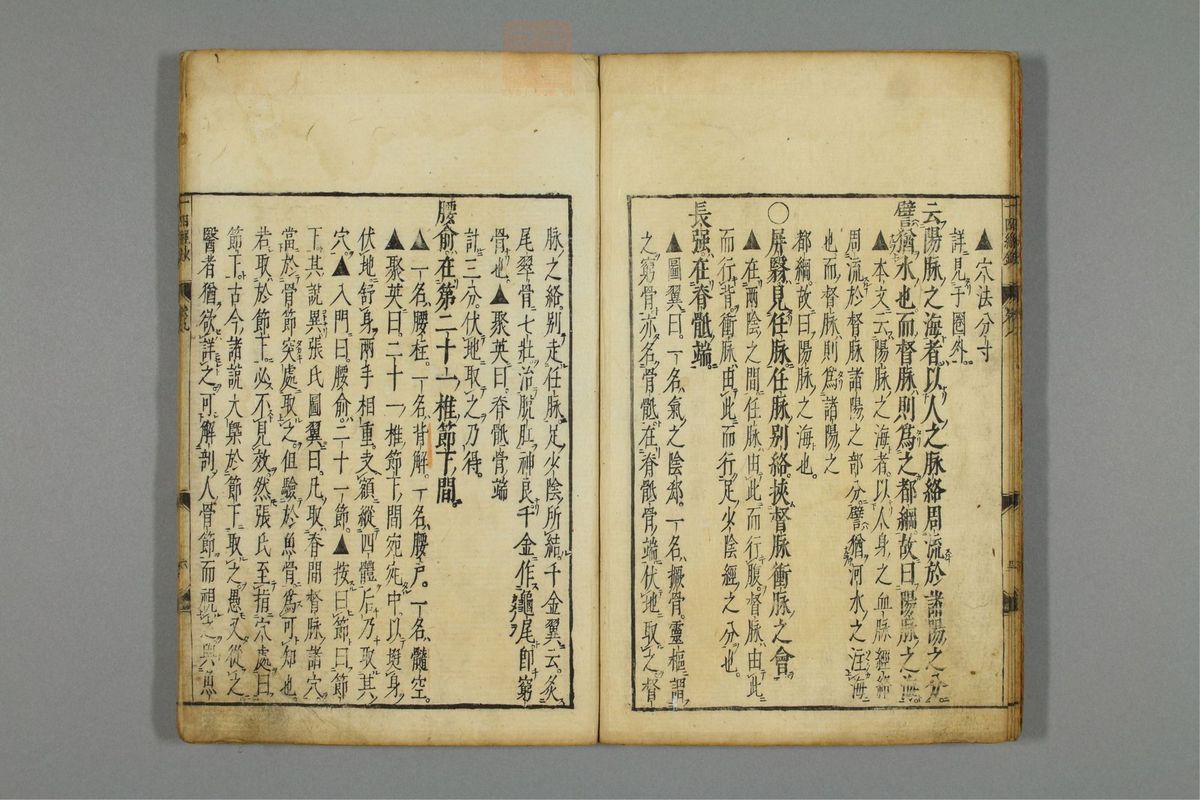 ▲穴法分寸
詳見于圈外
云陽脉之海者以人之脉絡周流於諸陽之分
譬猶水也而督脉則爲之都綱故曰陽脉之海
▲本文云陽脉之海者以人身之血脉經
周流於督脉諸陽之部分譬猶河水之注海
也而督脉則爲諸陽之
都綱故曰陽脉之海也
○屏翳見任脉任脉別絡挾督脉衝脉之會
▲在兩陰之間任脉由此而行腹督脉由此
而行背衝脉由此而行足少陰經之分也
長强在脊骶端
▲圖翼曰一名氣之陰郄一名撅骨靈樞謂
之窮骨亦名骨骶在脊骶骨端伏地取之督
脉之絡別走任脉足少陰所結千金翼云灸
尾翠骨七壯治脫肛神良千金作龜尾即窮
骨也▲聚英曰脊骶骨端
計三分伏地取之乃得
腰俞在第二十一椎節下間
▲一名腰柱一名背解一名腰户一名髓空
▲聚英曰二十一椎節下間宛宛中以挺身
伏地舒身兩手相重支額縱四體后乃取其
穴▲入門曰腰俞二十一節▲按曰節曰節
下其說異張氏圖翼曰凡取脊間督脉諸穴
當於骨節突處取之但驗於魚骨爲可知也
若取於節下必不見效然張氏至指穴處曰
節下古今諸說大槩於節下取之愚又從之
醫者猶欲詳之可解剖人骨節而視之與魚